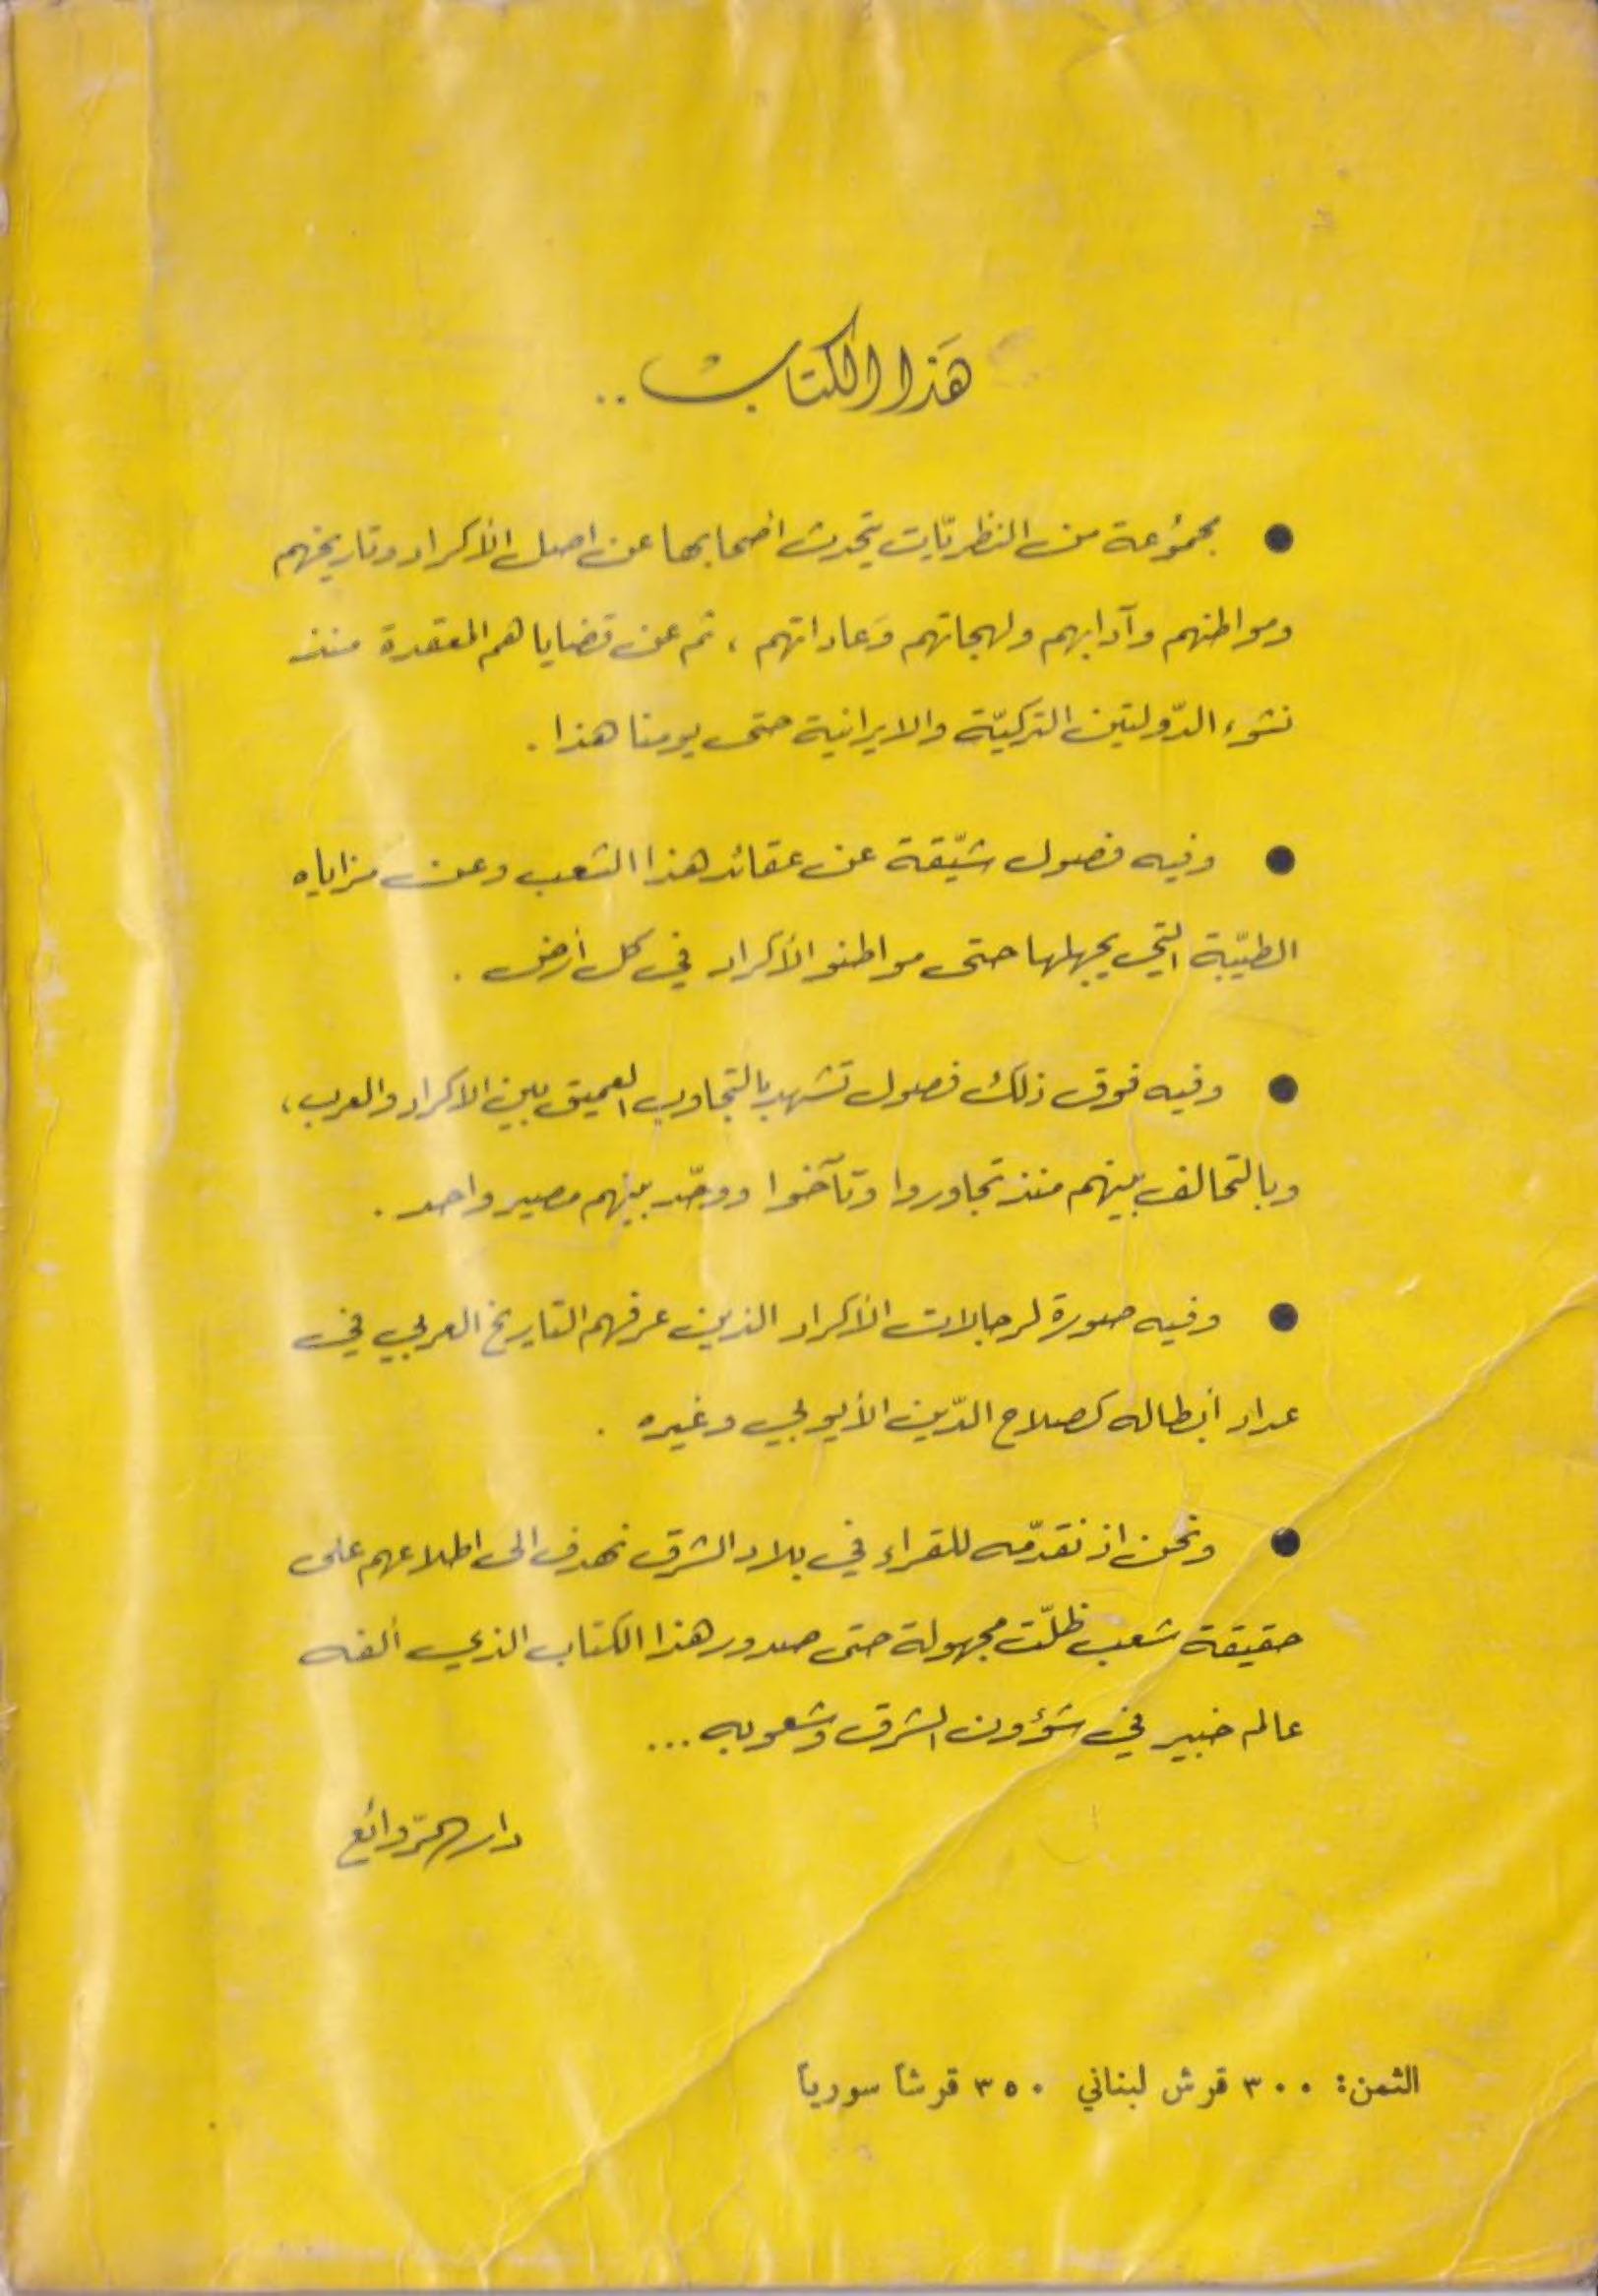 هَذا الكتاب ..
● مجموُعة من النظريّات يتحدث اصحابها عن اصل الأكراد وتاريخهم
ومواطنهم وآدابهم ولهجاتهم وَعاداتهم ، ثم عن قضاياهم المعقدة منذ
نشوء الدّولتين التركيّة والايرانية حتى يومنا هذا .
● وفيه فصول شيّقة عن عقائد هذا الشعب وعن مزاياه
الطيّبة التي يجهلها حتى مواطنو الأكراد في كل أرض .
● وفيه فوق ذلك فصول تشهد بالتجاوب العميق بين الاكراد والعرب ،
وبالتحالف بينهم منذ تجاوروا وتآخوا ووحّد بينهم مصير واحد .
● وفيه صورة لرجالات الأكراد الذين عرفهم التاريخ العربي في
عداد أبطاله كصلاح الدّين الأيوبي وغيره .
● ونحن اذ نقدّمه للقراء في بلاد الشرق نهدف الى اطلاعهم على
حقيقة شعب ظلّت مجهولة حتى صدور هذا الكتاب الذي ألفه
عالم خبير في شؤون الشرق وشعوبه ...
دار الرّوائع
الثمن: ٣٠٠ قرش لبناني ٣٥٠ قرشاً سورياً